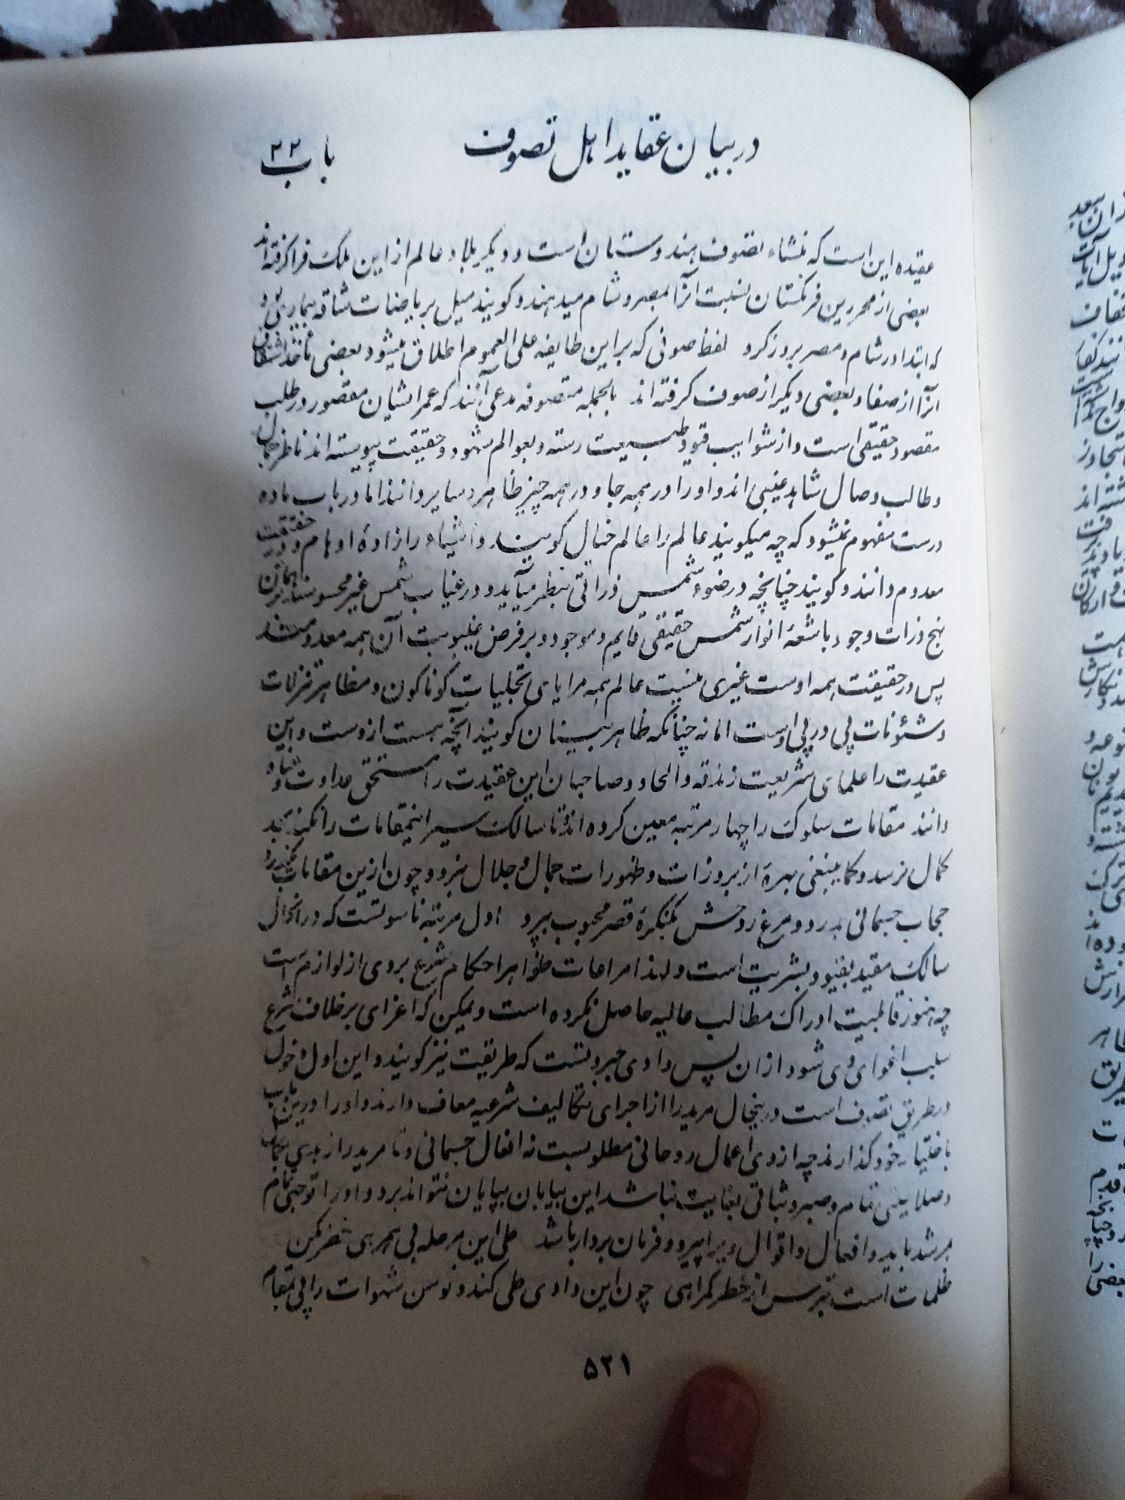 در بیان عقاید اهل تصوف
باب ۲۲
عقیده این است که منشاء تصوف هندوستان است و دیگر بلاد عالم از این ملک فرا گرفته‌اند
بعضی از محررین فرنگستان نسبت آنرا بمصر و شام میدهند و گویند میل بریاضات شاقه
که ابتدا در شام و مصر بروز کرد لفظ صوفی که بر این طایفه علی العموم اطلاق میشود بعضی
آنرا از صفا و بعضی دیگر از صوف گرفته‌اند بالجمله متصوفه مدعی آنند که عمر ایشان مقصور در طلب
مقصود حقیقی است و از شوایب قیود طبیعت رسته و بعوالم شهود و حقیقت پیوسته‌اند ناظر جمال
و طالب وصال شاهد غیبی‌اند و او را در همه جا و در همه چیز ظاهر و سایر دانند اما در باب ماده
درست مفهوم نمیشود که چه میگویند عالم را عالم خیال گویند و اشیاء را زادهٔ اوهام و در حقیقت
معدوم دانند و گویند چنانچه در ضوء شمس ذراتی بنظر میآید و در غیاب شمس غیر محسوسند بر همان
نهج ذرات وجود باشعهٔ انوار شمس حقیقی قایم و موجود و بر فرض غیبوبت آن همه معدومند
پس در حقیقت همه اوست غیری نیست عالم همه مرایای تجلیات گوناگون و مظاهر تنزلات
و شئونات پی در پی اوست اما نه چنانکه ظاهر بینان گویند آنچه هست ازوست و این
عقیدت را علمای شریعت زندقه و الحاد و صاحبان این عقیدت را مستحق عداوت و
دانند مقامات سلوک را چهار مرتبه معین کرده‌اند و تا سالک سیر اینمقامات را نکند بحد
کمال نرسد و کما ینبغی بهرهٔ از بروزات و ظهورات جمال و جلال نبرد و چون ازین مقامات بگذرد
حجاب جسمانی بدرد و مرغ روحش بکنگرهٔ قصر محبوب بپرد اول مرتبه ناسوتست که در آنحال
سالک مقید بقیود بشریت است و لهذا مراعات ظواهر احکام شرع بروی از لوازم است
چه هنوز قابلیت ادراک مطالب عالیه حاصل نکرده است و یمکن که اعزای بر خلاف شرع
سبب اغوای وی شود از آن پس وادی جبروتست که طریقت نیز گویند و این اول دخول
در طریق تصوف است درینحال مرید را از اجرای تکالیف شرعیه معاف دارند و او را درین باب
باختیار خود گذارند چه از وی اعمال روحانی مطلوبست نه افعال جسمانی و تا مرید را زهدی
و صلابتی تمام و صبر و ثباتی بغایت نباشد این بیابان بی‌پایان نتواند برد و او را توجهی تام
بمرشد باید و افعال و اقوال ویرا پیرو و فرمان بردار باشد طی این مرحله بی همرهی خضر مکن
ظلمات است بترس از خطر گمراهی چون این وادی طی کند و توسن شهوات را پی بمقام
۵۲۱